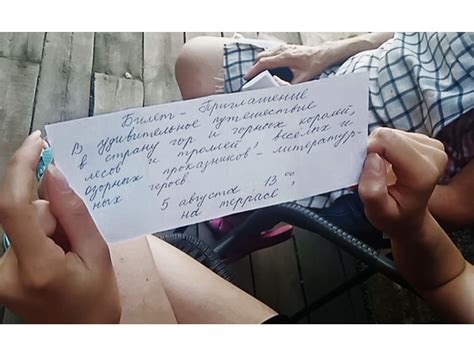 Билет-Приглашение
В удивительное путешествие
в страну гор и горных королей,
лесов и троллей! Весёлых и
озорных проказников - литератур-
ных героев.
5 августа, 13 00,
на террасе